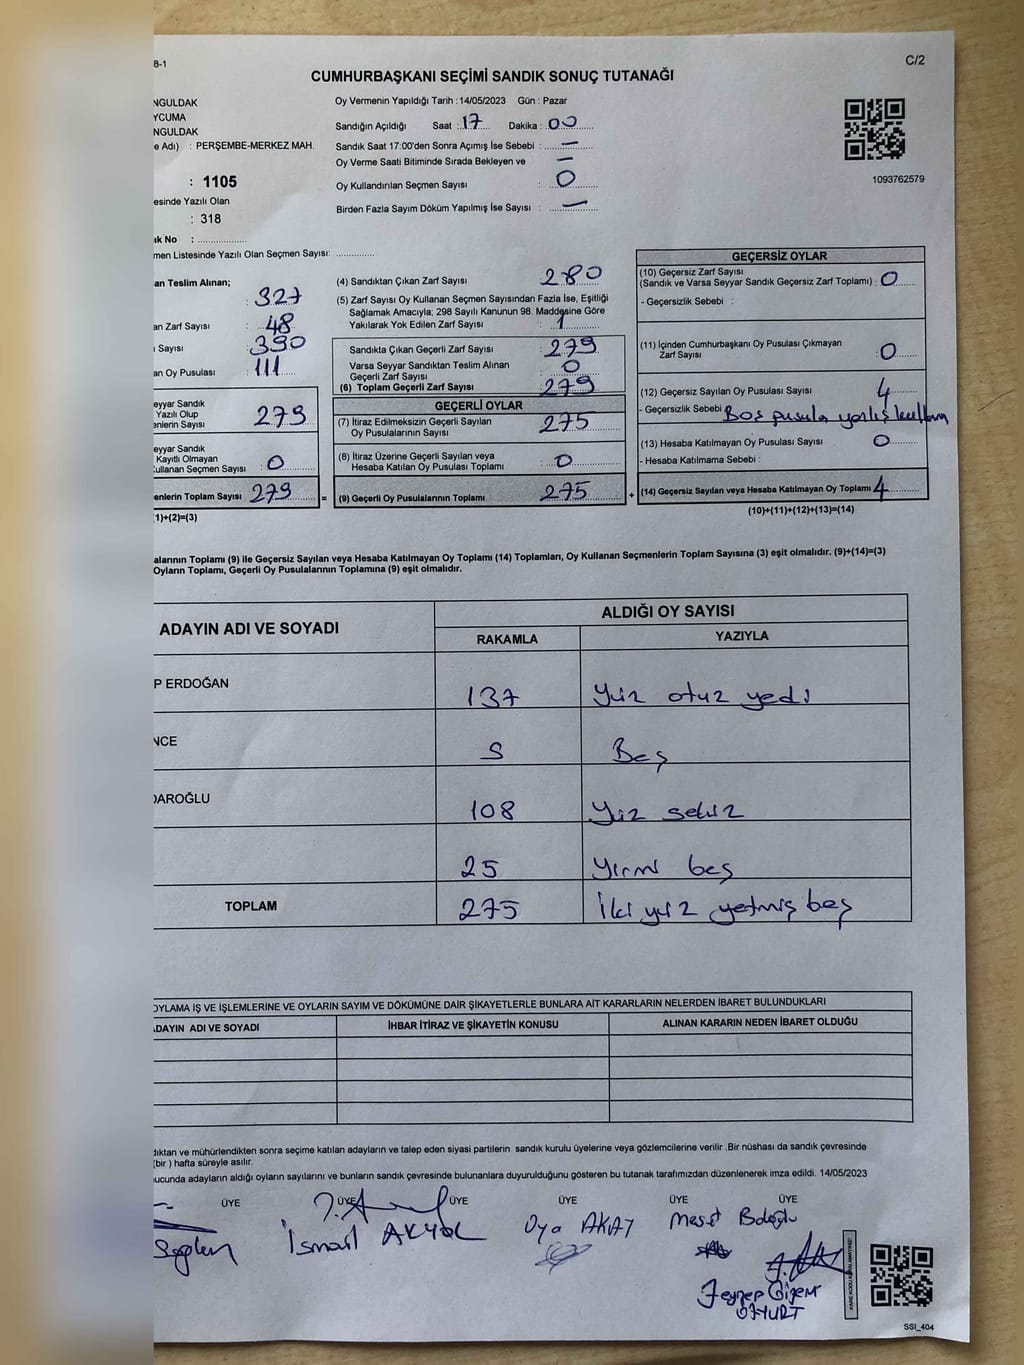 8-1
C/2
CUMHURBAŞKANI SEÇİMİ SANDIK SONUÇ TUTANAĞI
NGULDAK
YCUMA
NGULDAK
e Adı) : PERŞEMBE-MERKEZ MAH.
: 1105
esinde Yazılı Olan
: 318
ık No :
men Listesinde Yazılı Olan Seçmen Sayısı:
Oy Vermenin Yapıldığı Tarih : 14/05/2023 Gün : Pazar
Sandığın Açıldığı Saat : 17 Dakika : 00
Sandık Saat 17:00'den Sonra Açımış İse Sebebi : —
Oy Verme Saati Bitiminde Sırada Bekleyen ve —
Oy Kullandırılan Seçmen Sayısı : 0
Birden Fazla Sayım Döküm Yapılmış İse Sayısı : —
1093762579
an Teslim Alınan;
: 327
an Zarf Sayısı : 48
ı Sayısı : 390
an Oy Pusulası : 111
eyyar Sandık
Yazılı Olup
enlerin Sayısı 279
eyyar Sandık
Kayıtlı Olmayan
ullanan Seçmen Sayısı : 0
enlerin Toplam Sayısı 279 =
1)+(2)=(3)
(4) Sandıktan Çıkan Zarf Sayısı 280
(5) Zarf Sayısı Oy Kullanan Seçmen Sayısından Fazla İse, Eşitliği
Sağlamak Amacıyla; 298 Sayılı Kanunun 98. Maddesine Göre
Yakılarak Yok Edilen Zarf Sayısı : 1
Sandıkta Çıkan Geçerli Zarf Sayısı : 279
Varsa Seyyar Sandıktan Teslim Alınan
Geçerli Zarf Sayısı : 0
(6) Toplam Geçerli Zarf Sayısı : 279
GEÇERLİ OYLAR
(7) İtiraz Edilmeksizin Geçerli Sayılan
Oy Pusulalarının Sayısı : 275
(8) İtiraz Üzerine Geçerli Sayılan veya
Hesaba Katılan Oy Pusulası Toplamı : 0
(9) Geçerli Oy Pusulalarının Toplamı 275 +
GEÇERSİZ OYLAR
(10) Geçersiz Zarf Sayısı
(Sandık ve Varsa Seyyar Sandık Geçersiz Zarf Toplamı) : 0
- Geçersizlik Sebebi :
(11) İçinden Cumhurbaşkanı Oy Pusulası Çıkmayan
Zarf Sayısı : 0
(12) Geçersiz Sayılan Oy Pusulası Sayısı : 4
- Geçersizlik Sebebi Boş pusula yanlış kullanım
(13) Hesaba Katılmayan Oy Pusulası Sayısı : 0
- Hesaba Katılmama Sebebi :
(14) Geçersiz Sayılan veya Hesaba Katılmayan Oy Toplamı 4
(10)+(11)+(12)+(13)=(14)
alarının Toplamı (9) ile Geçersiz Sayılan veya Hesaba Katılmayan Oy Toplamı (14) Toplamları, Oy Kullanan Seçmenlerin Toplam Sayısına (3) eşit olmalıdır. (9)+(14)=(3)
Oyların Toplamı, Geçerli Oy Pusulalarının Toplamına (9) eşit olmalıdır.
ADAYIN ADI VE SOYADI
ALDIĞI OY SAYISI
RAKAMLA YAZIYLA
P ERDOĞAN 137 Yüz otuz yedi
NCE 5 Beş
DAROĞLU 108 Yüz sekiz
25 Yirmi beş
TOPLAM 275 İki yüz yetmiş beş
OYLAMA İŞ VE İŞLEMLERİNE VE OYLARIN SAYIM VE DÖKÜMÜNE DAİR ŞİKAYETLERLE BUNLARA AİT KARARLARIN NELERDEN İBARET BULUNDUKLARI
ADAYIN ADI VE SOYADI İHBAR İTİRAZ VE ŞİKAYETİN KONUSU ALINAN KARARIN NEDEN İBARET OLDUĞU
dıktan ve mühürlendikten sonra seçime katılan adayların ve talep eden siyasi partilerin sandık kurulu üyelerine veya gözlemcilerine verilir .Bir nüshası da sandık çevresinde
(bir ) hafta süreyle asılır.
ucunda adayların aldığı oyların sayılarını ve bunların sandık çevresinde bulunanlara duyurulduğunu gösteren bu tutanak tarafımızdan düzenlenerek imza edildi. 14/05/2023
ÜYE ÜYE ÜYE ÜYE ÜYE ÜYE
İsmail AKYOL Oya AKAY Mesut
Zeynep Gizem
ÖZYURT
SSI_404